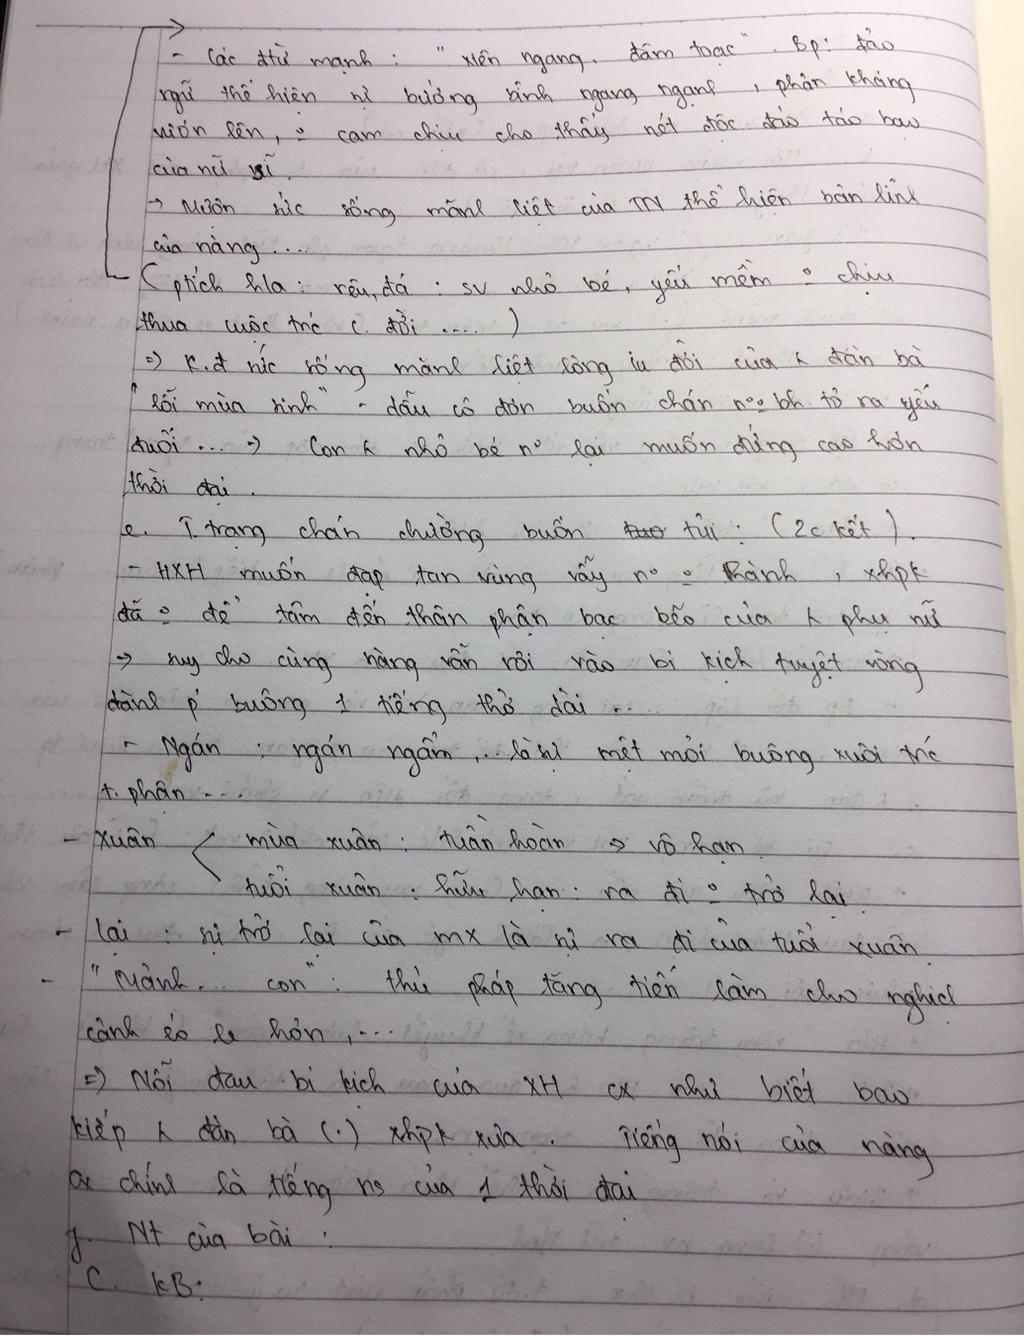 - Các đtừ mạnh : "xiên ngang, đâm toạc". Bp: đảo
ngữ thể hiện sự bướng bỉnh ngang ngạnh, phản kháng
vươn lên, o cam chịu cho thấy nét độc đáo táo bạo
của nữ sĩ.
→ Mượn sức sống mãnh liệt của TN thể hiện bản lĩnh
của nàng ...
( ptích hla : rêu, đá : sv nhỏ bé, yếu mềm o chịu
thua cuộc trc c. đời .... )
=> K.đ sức sống mãnh liệt lòng iu đời của k đàn bà
"lỗi mùa sinh" - dẫu cô đơn buồn chán no o bh tỏ ra yếu
đuối ... => Con k nhỏ bé no lại muốn đứng cao hơn
thời đại.
e. T.trạng chán chường buồn tủi : (2c kết).
- HXH muốn đạp tan vùng vẫy no o thành, xhpk
đã o để tâm đến thân phận bạc bẽo của k phụ nữ
→ suy cho cùng nàng vẫn rơi vào bi kịch tuyệt vọng
đành p' buông 1 tiếng thở dài ....
- Ngán : ngán ngẩm, ... là sự mệt mỏi buông xuôi trc
t. phận ....
- Xuân < mùa xuân : tuần hoàn => vô hạn.
tuổi xuân : hữu hạn : ra đi o trở lại.
- lại : sự trở lại của mx là sự ra đi của tuổi xuân.
- "Mảnh... con" : thủ pháp tăng tiến làm cho nghịch
cảnh éo le hơn, ...
=> Nỗi đau bi kịch của XH cx như biết bao
kiếp k đàn bà (.) xhpk xưa. Tiếng nói của nàng
cx chính là tiếng ns của 1 thời đại
g. Nt của bài :
C. KB: